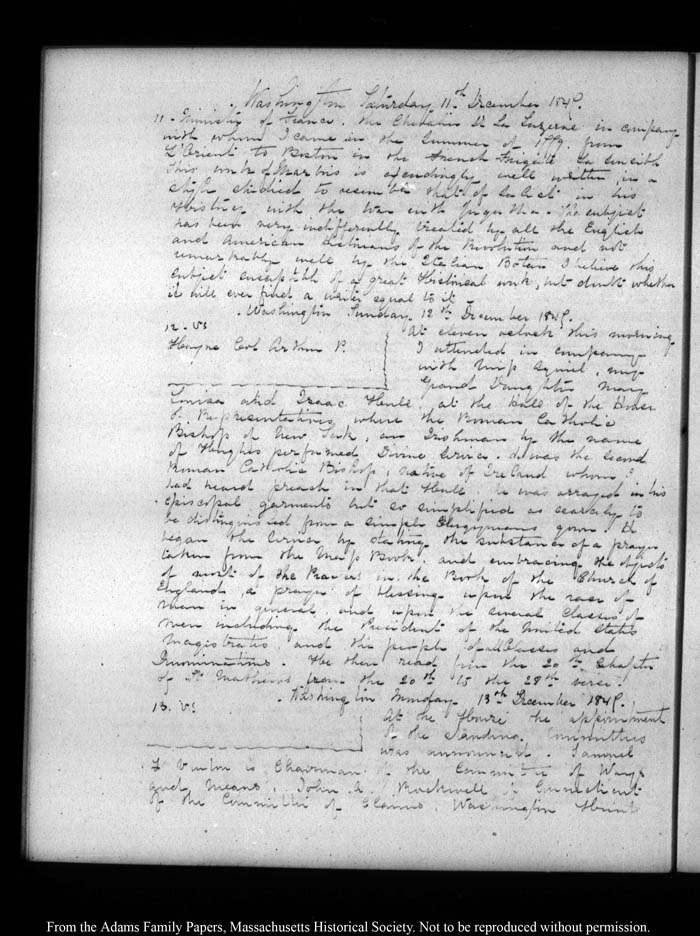 Washington Saturday 11th December 1847.
11- Minister of France. the Chevalier De La Luzerne in company
with whom I came in the Summer of 1779. from
L'Orient to Boston in the French Frigate La Sensible
This work of Marbois is exceedingly well written, in a
style studied to resemble that of Sallust in his
History with the War with Jugurtha. The subject
has been very indifferently treated by all the English
and American historians of the Revolution and not
remarkably well by the Italian Botta I believe this
subject susceptible of a great Historical work, but doubt whether
it will ever find a writer equal to it
Washington Sunday. 12th December 1847.
12. VI
At eleven oclock this morning
Hayne Col Arthur P.
I attended in company
with Miss Squiel, my
Grand Daughter Mary
Louisa and Isaac Hull, at the Hall of the House
of Representatives, where the Roman Catholic
Bishop of New York, an Irishman by the name
of Hughes performed Divine Service. He was the second
Roman Catholic Bishop, native of Ireland whom I
had heard preach in that Hall. He was arrayed in his
episcopal garments but so simplified as scarcely to
be distinguished from a simple Clergymans gown. He
began the service by stating the substance of a prayer
taken from the Mass Book. and embracing the objects
of most of the Prayers in the Book of the Church of
England, a prayer of blessing upon the race of
man in general, and upon the several Classes of
men including the President of the United States
Magistrates and the people of all Classes and
Denominations. He then read from the 20th Chapter
of St Mathews from the 20th to the 28th verse.
Washington Monday. 13th December 1847.
13. VI
At the House the appointment
of the Standing Committees
was announced. Samuel
F Vinton is Chairman of the Committee of Ways
and Means, John A. Rockwell of Connecticut
of the Committee of Claims, Washington Hunt
From the Adams Family Papers, Massachusetts Historical Society. Not to be reproduced without permission.